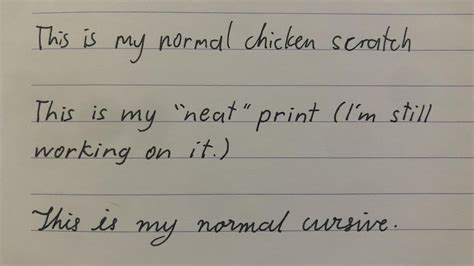 This is my normal chicken scratch
This is my "neat" print (I'm still
working on it.)
This is my normal cursive.